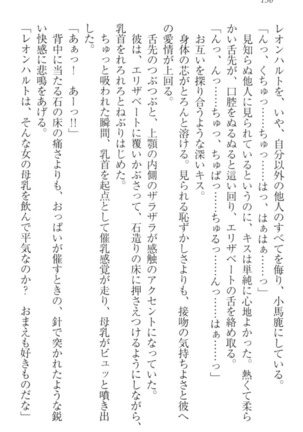 150
レオンハルトを、いや、自分以外の他人のすべてを侮り、小馬鹿にしている。
「んっ、くちゅっ……ちゅっ……はっ、はぁはぁ……っ」
見知らぬ他人に見られているというのに、キスは単純に心地よかった。熱くて柔ら
かい舌先が、口腔をぬるぬると這い回り、エリザベートの舌を絡め取る。
「んっ、んっ……ちゅっ、ちゅばっ……ちゅるっ……んっ……はぁ……っ」
お互いを探り合うような深いキス。
身体の芯がとろんと溶ける。見られる恥ずかしさよりも、接吻の気持ちよさと彼へ
の愛情が上回る。
舌先のつぶつぶと、上顎の内側のザラザラが感触のアクセントになっていた。
彼は、エリザベートに覆いかぶさって、石造りの床に押さえつけるようにしながら、
乳首をれろれろとねぶりはじめた。
ちゅっと吸われた瞬間、乳首を起点として催乳感覚が走り、母乳がビュッと噴き出
「あぁっ！　あーっ!!」
背中に当たる石の床の痛さよりも、おっぱいが催すときの、針で突かれたような鋭
い快感に悲鳴をあげる。
「レオンハルトは、そんな女の母乳を飲んで平気なのか？　おまえも好きものだな」